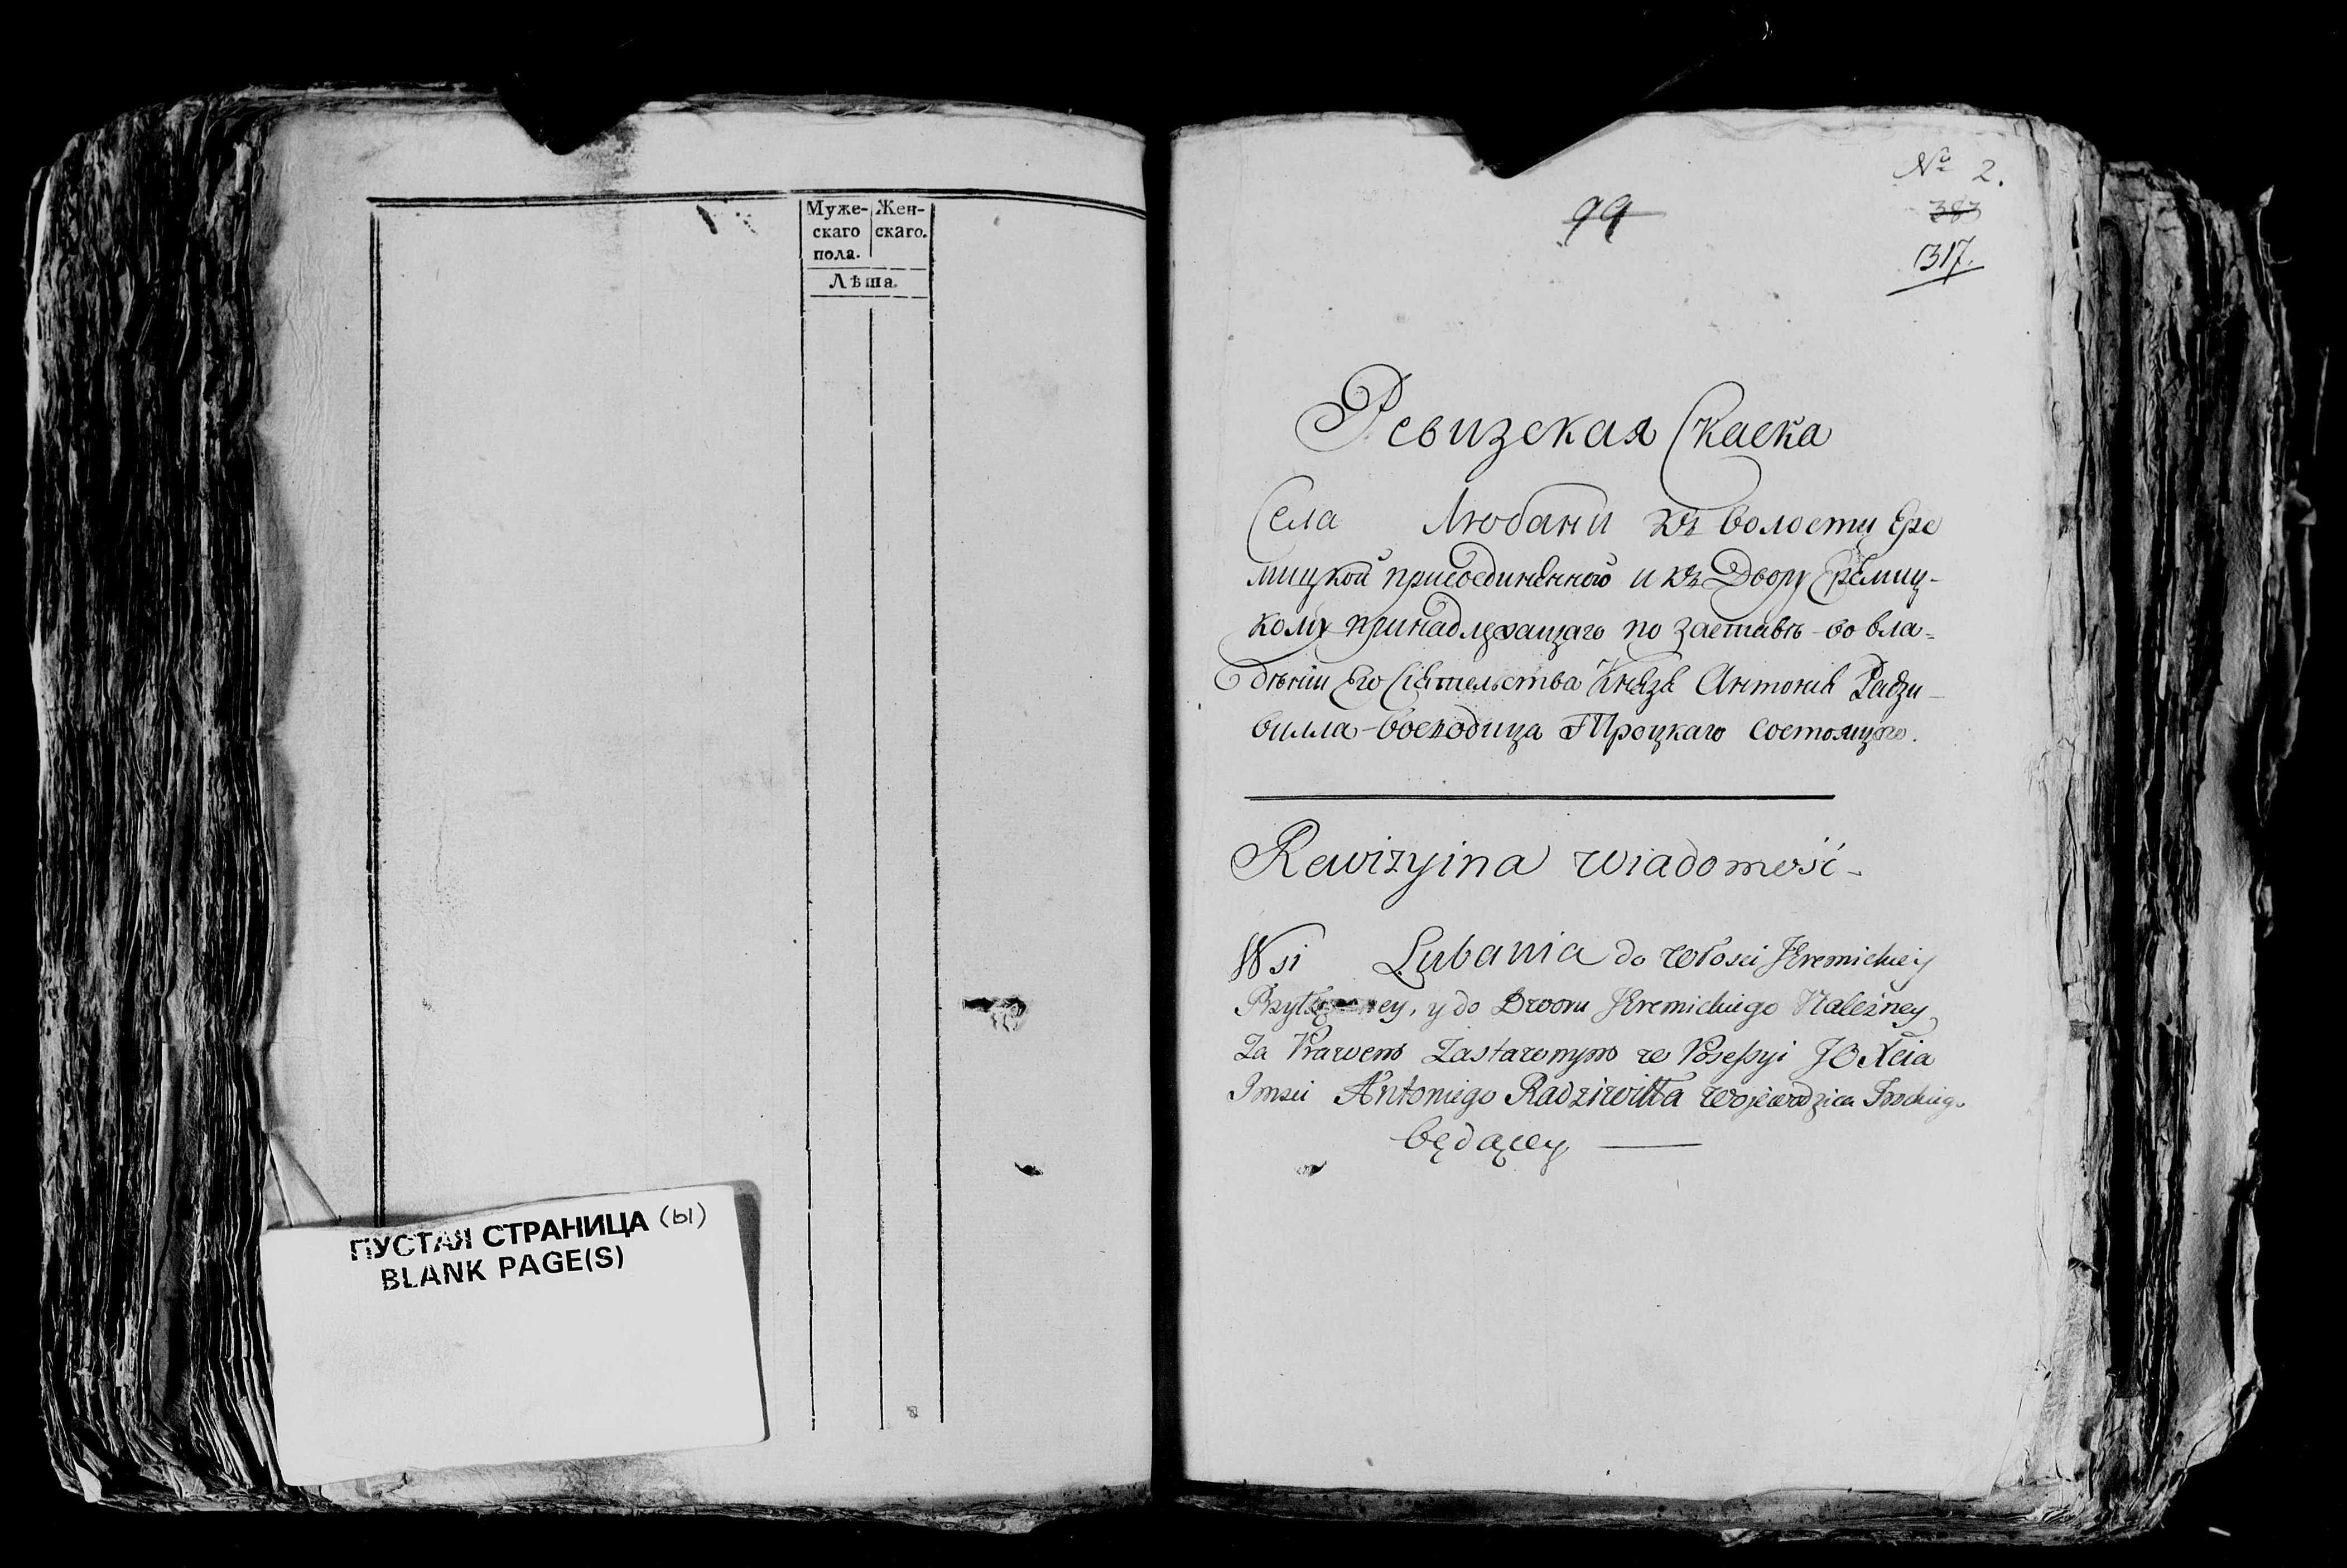 Муже- Жен-
скаго скаго.
пола.
Лѣта.
ПУСТАЯ СТРАНИЦА (ы)
BLANK PAGE(S)
№ 2.
99
387
1317.
Ревизская Скаска
Села Любани къ волости Ере
мицкой присоединенного и къ Двору Еремиц-
кому принадлежащаго по заставѣ во вла=
дѣнiи Его Сіятельства Князя Антонія Радзи-
вилла воеводица Троцкаго состоящаго.
Rewizyina wiadomość -
Wsi Lubania do włosci JEremickiey
ey, y do Dworu JEremickiego Należney
Za Prawem Zastawnym w Possessyi JO Xcia
Imsci Antoniego Radziwiłła Wojewodzica Trockiego
będącey